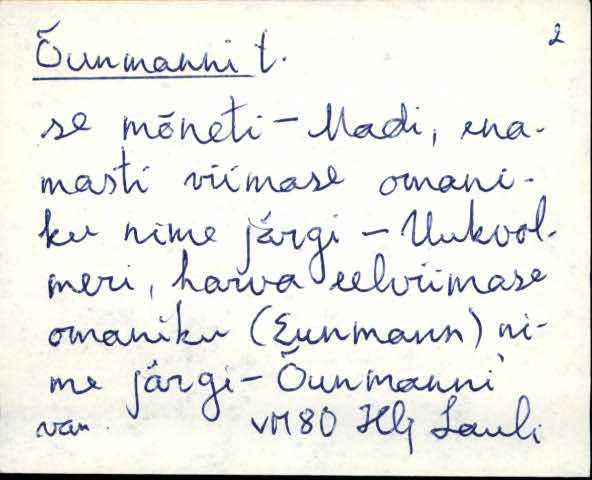 2
Õunmanni t.
se mõneti - Madi, ena-
masti viimase omani-
ku nime järgi - Uukvol-
meri, harva eelviimase
omaniku (Eunmann) ni-
me järgi - Õunmanni
van. VM80 Hlj Lauli